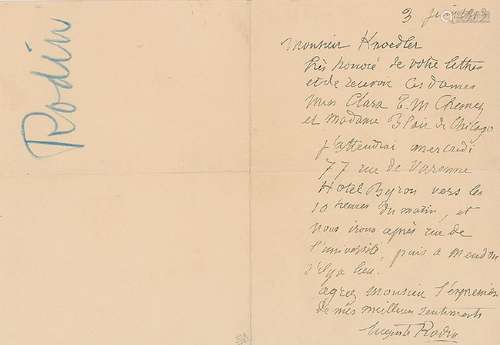 Rodin
3 juin
Monsieur Knoedler
très honoré de votre lettre
et de recevoir ces dames
miss Clara E. M Chesney
et madame Blair de Chicago
j'attendrai mercredi
77 rue de Varenne
Hotel Byron vers les
10 heures du matin, et
nous irons après rue de
l'université, puis à meudon
s'il y a lieu.
agréez Monsieur l'expression
de mes meilleurs sentiments
Auguste Rodin